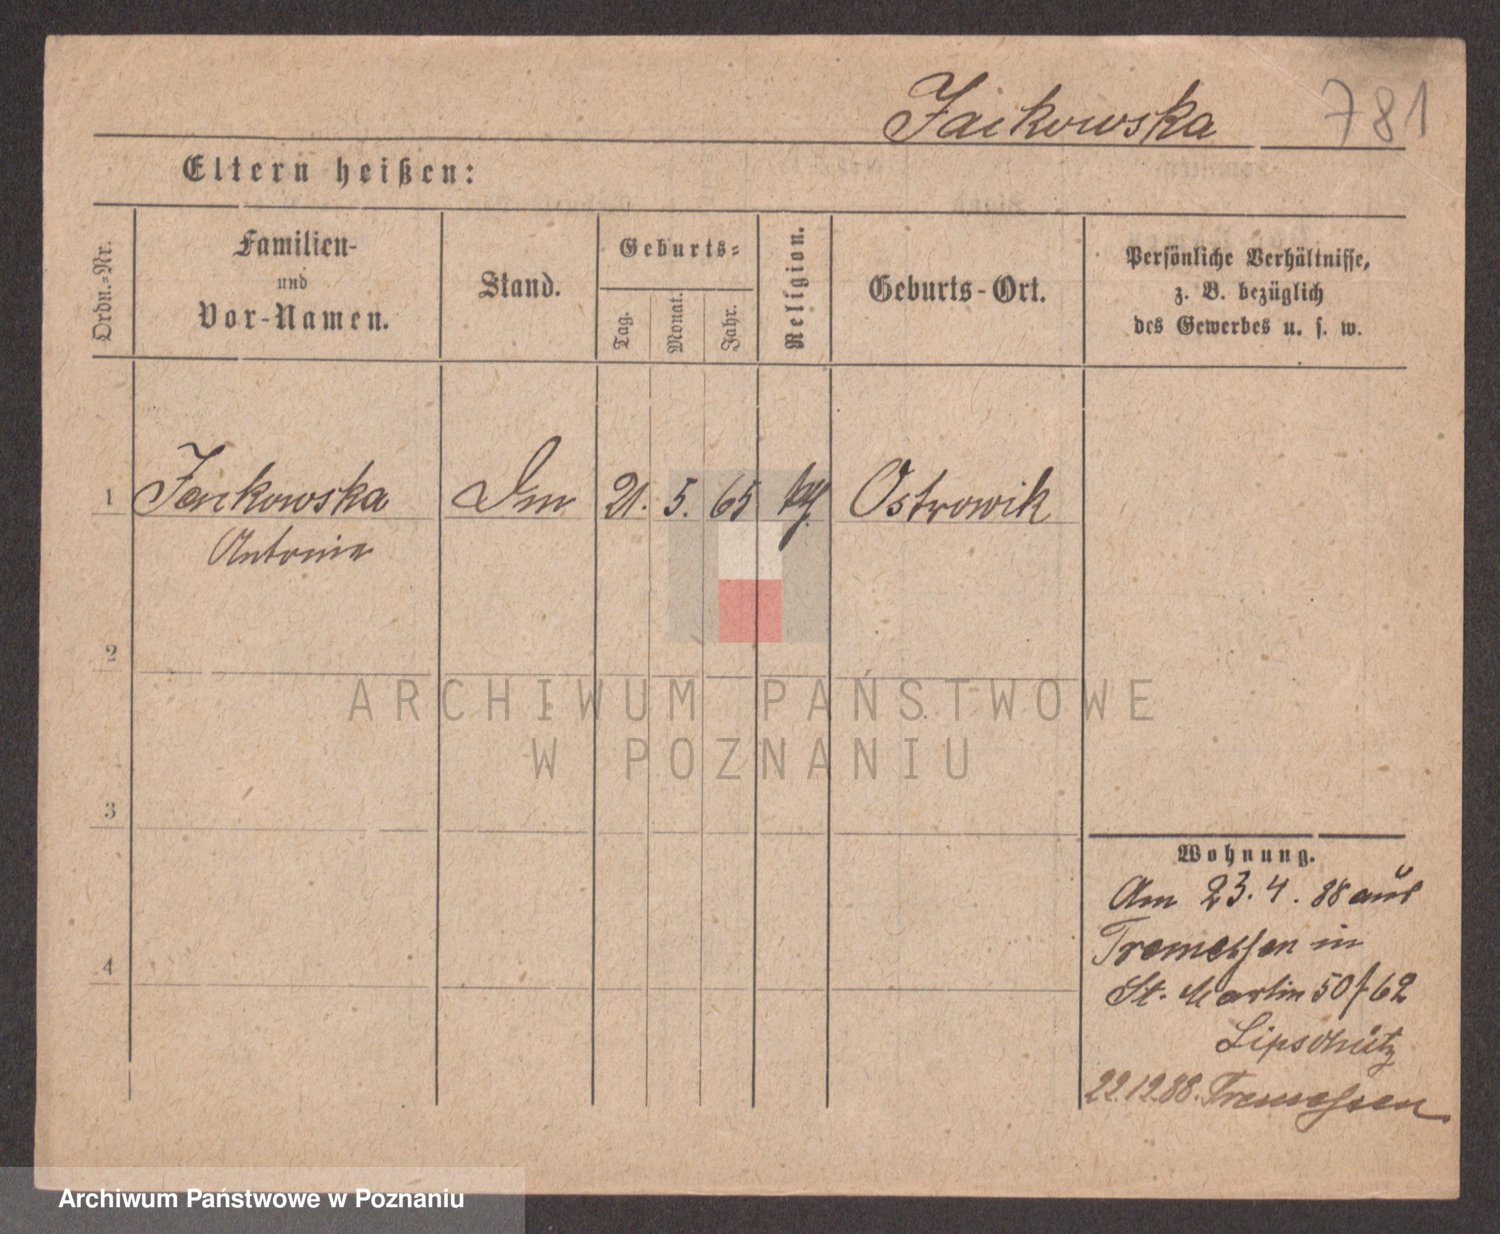 Jackowska 781
Eltern heißen:
Ordn.-Nr.
Familien-
und
Vor-Namen.
Stand.
Geburts-
Tag.
Monat.
Jahr.
Religion.
Geburts-Ort.
Persönliche Verhältnisse,
z. B. bezüglich
des Gewerbes u. s. w.
1 Jackowska 21. 5. 65 Ostrowik
Antonie
2
ARCHIWUM PAŃSTWOWE
W POZNANIU
3
4
Wohnung.
Am 23. 4. 88 aus
Tremessen in
St. Martin 50/62
Lipschütz
22.12.88. Tremessen
Archiwum Państwowe w Poznaniu